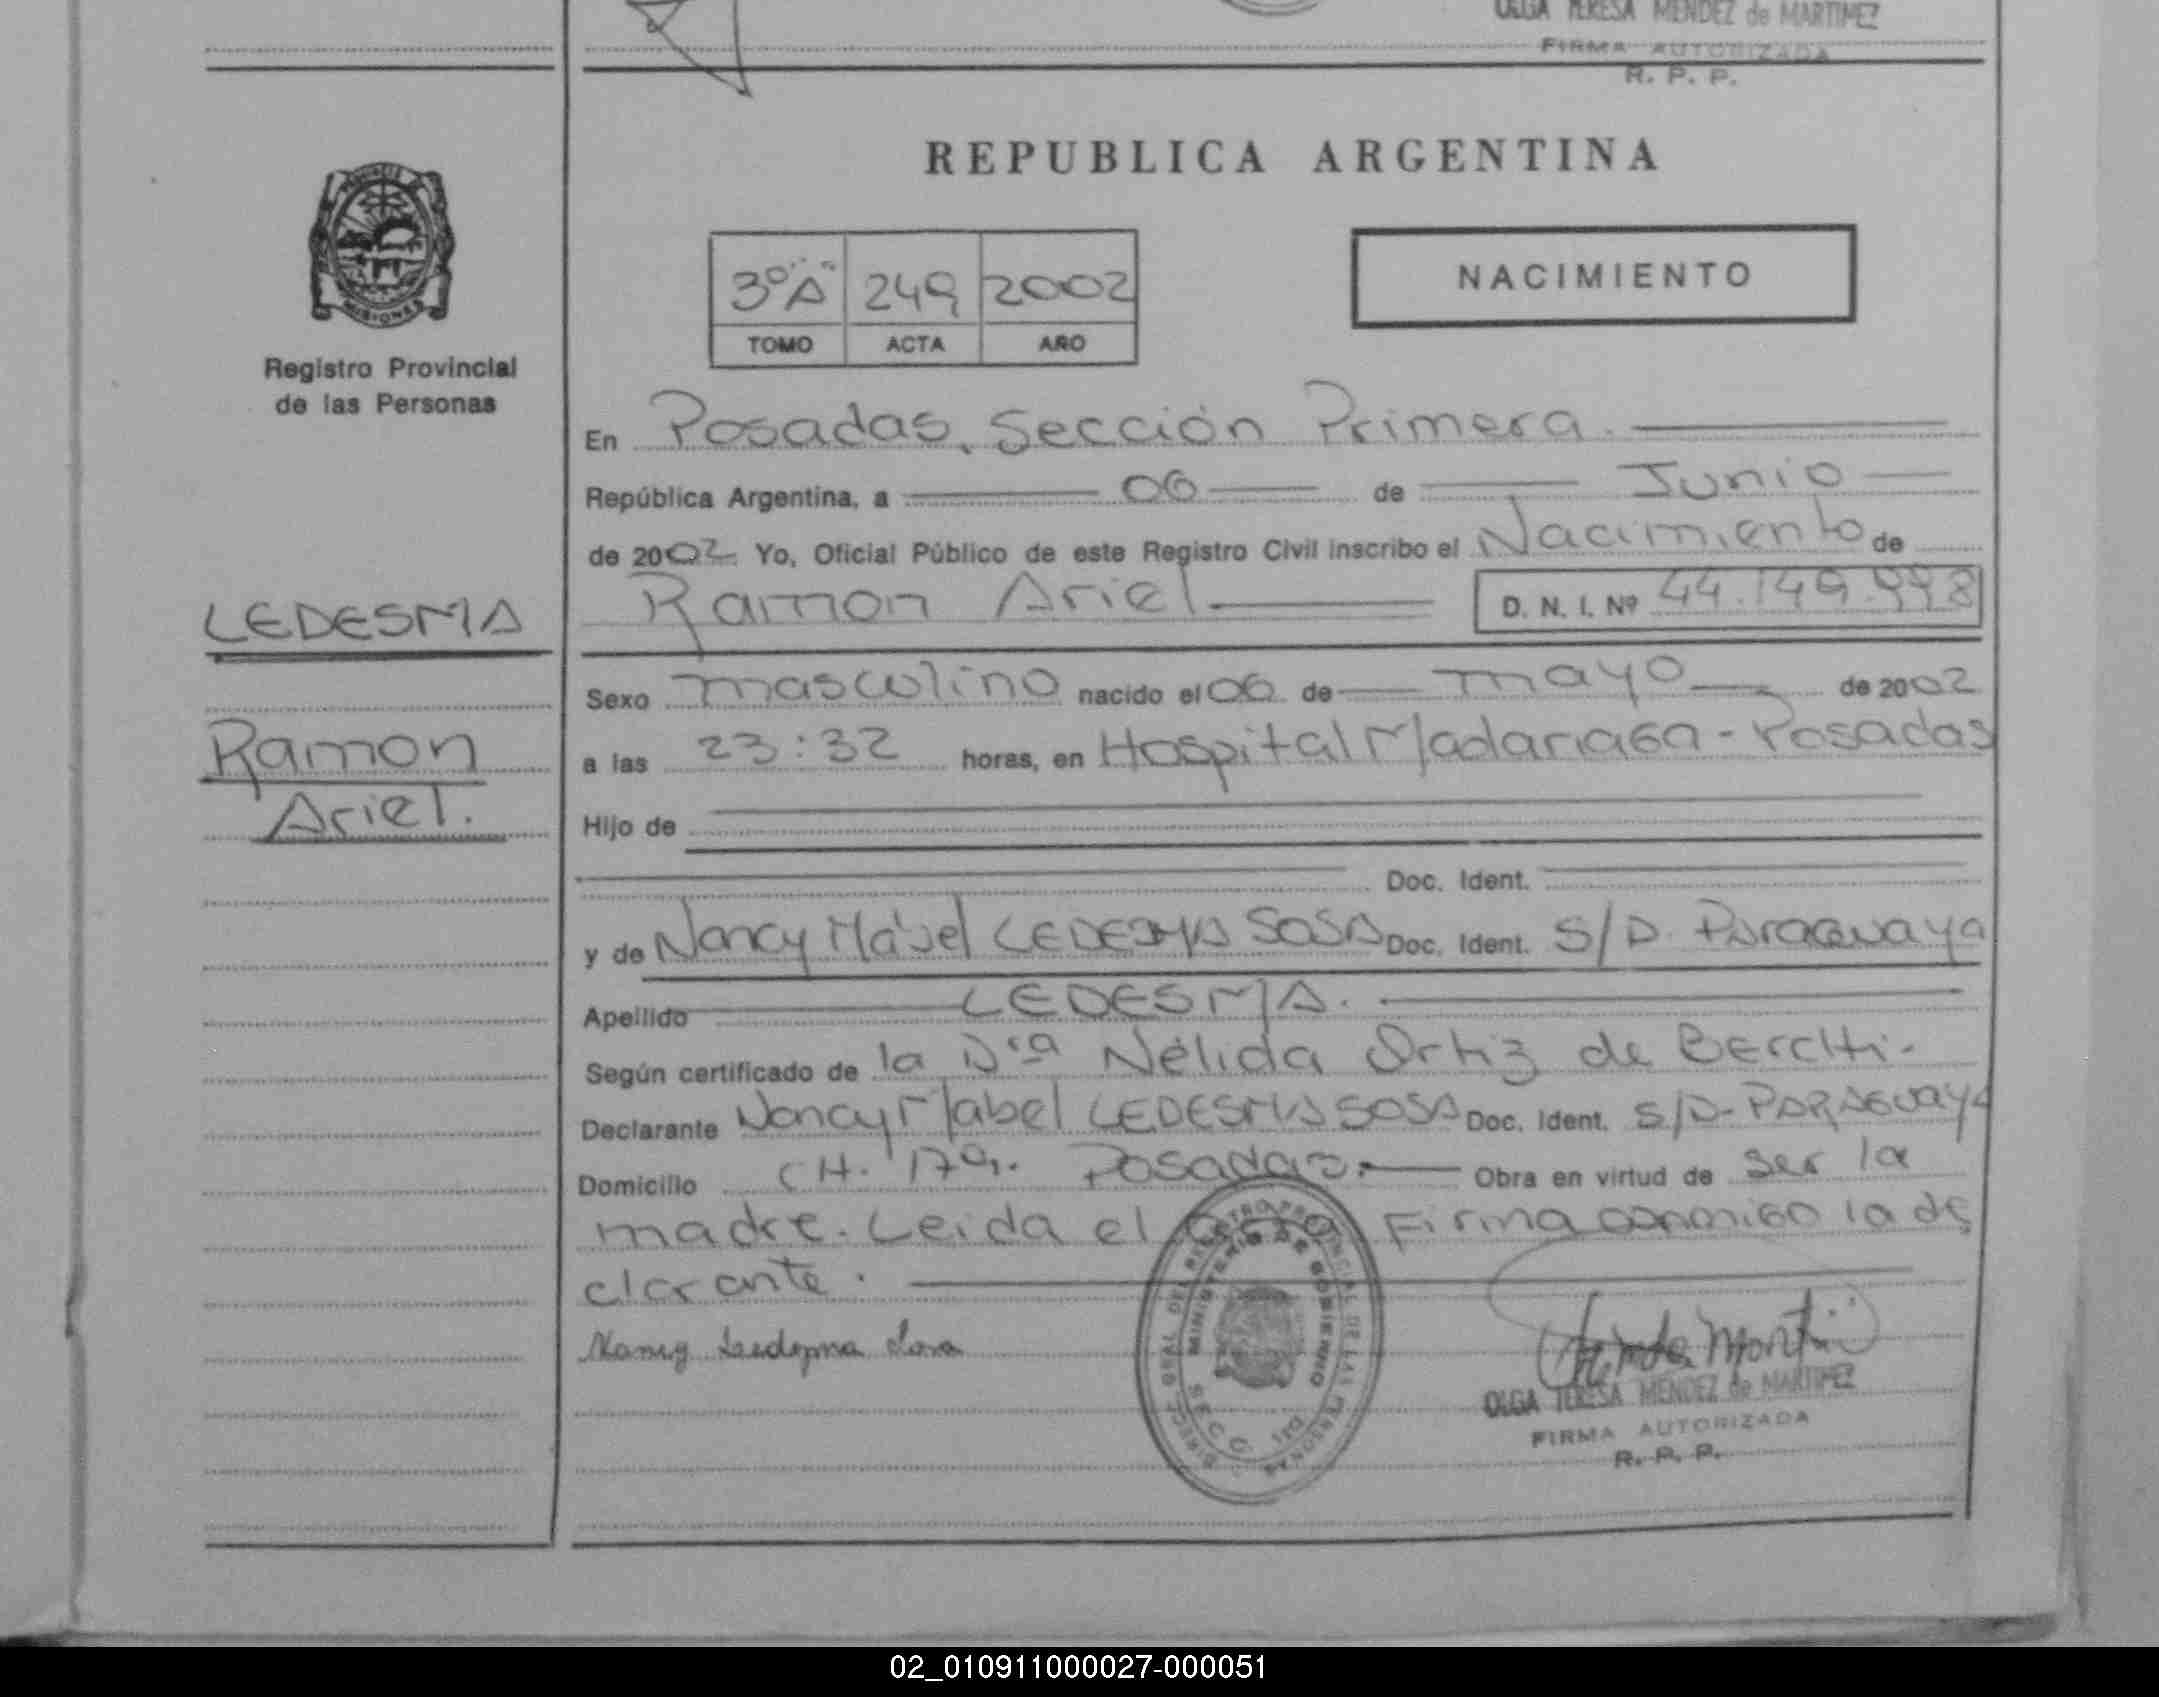 OLGA TERESA MENDEZ de MARTINEZ
FIRMA AUTORIZADA
R. P. P.
REPUBLICA ARGENTINA
MISIONES
3º "A" 249 2002
TOMO ACTA AÑO
NACIMIENTO
Registro Provincial
de las Personas
En Posadas, Sección Primera.
República Argentina, a 06 de Junio
de 2002 Yo, Oficial Público de este Registro Civil inscribo el Nacimiento de
Ramon Ariel D. N. I. Nº
LEDESMA
Ramon
Ariel.
Sexo masculino nacido el 06 de mayo de 2002
a las 23:32 horas, en Hospital Madariaga - Posadas
Hijo de
Doc. Ident.
y de Nancy Mabel LEDESMA SOSA Doc. Ident. S/D. Paraguaya
Apellido LEDESMA.
Según certificado de la Dra Nélida Ortiz de
Declarante Nancy Mabel LEDESMA SOSA Doc. Ident. S/D- PARAGUAYA
Domicilio CH. Posadas. Obra en virtud de ser la
madre. Leida el acta Firma conmigo la de
clarante.
Nancy Ledesma Sosa
MINISTERIO DE GOBIERNO
SECC. 1ra
OLGA TERESA MENDEZ de MARTINEZ
FIRMA AUTORIZADA
R. P. P.
02_010911000027-000051